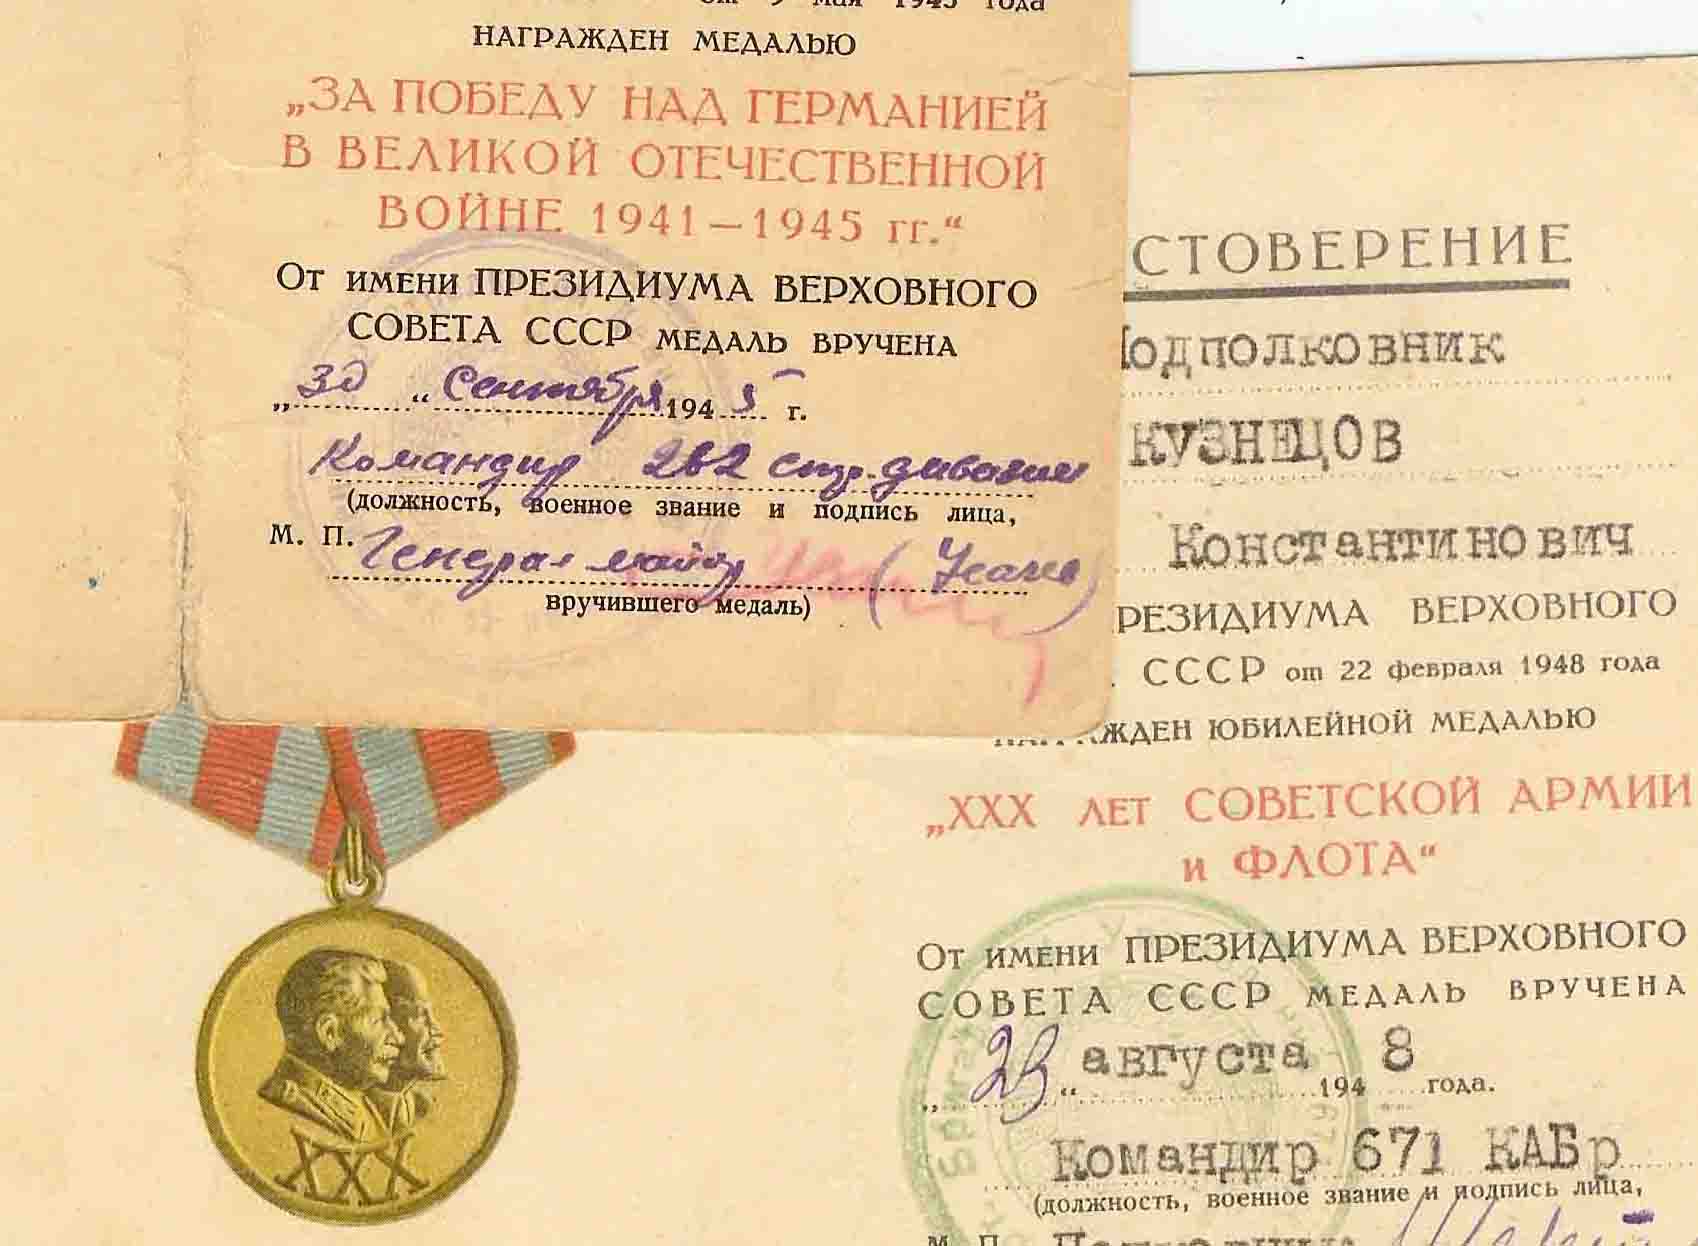 от 9 мая 1945 года
НАГРАЖДЕН МЕДАЛЬЮ
„ЗА ПОБЕДУ НАД ГЕРМАНИЕЙ
В ВЕЛИКОЙ ОТЕЧЕСТВЕННОЙ
ВОЙНЕ 1941—1945 гг.“
От имени ПРЕЗИДИУМА ВЕРХОВНОГО
СОВЕТА СССР МЕДАЛЬ ВРУЧЕНА
„30“ Сентября 1945 г.
Командир 262 стр. дивизии
(должность, военное звание и подпись лица,
М. П. Генерал майор
вручившего медаль)
СТОВЕРЕНИЕ
Подполковник
КУЗНЕЦОВ
Константинович
РЕЗИДИУМА ВЕРХОВНОГО
СССР от 22 февраля 1948 года
ЖДЕН ЮБИЛЕЙНОЙ МЕДАЛЬЮ
„XXX ЛЕТ СОВЕТСКОЙ АРМИИ
и ФЛОТА“
От имени ПРЕЗИДИУМА ВЕРХОВНОГО
СОВЕТА СССР МЕДАЛЬ ВРУЧЕНА
„23“ августа 1948 года.
Командир 671 КАБр
(должность, военное звание и подпись лица,
М. П.
XXX